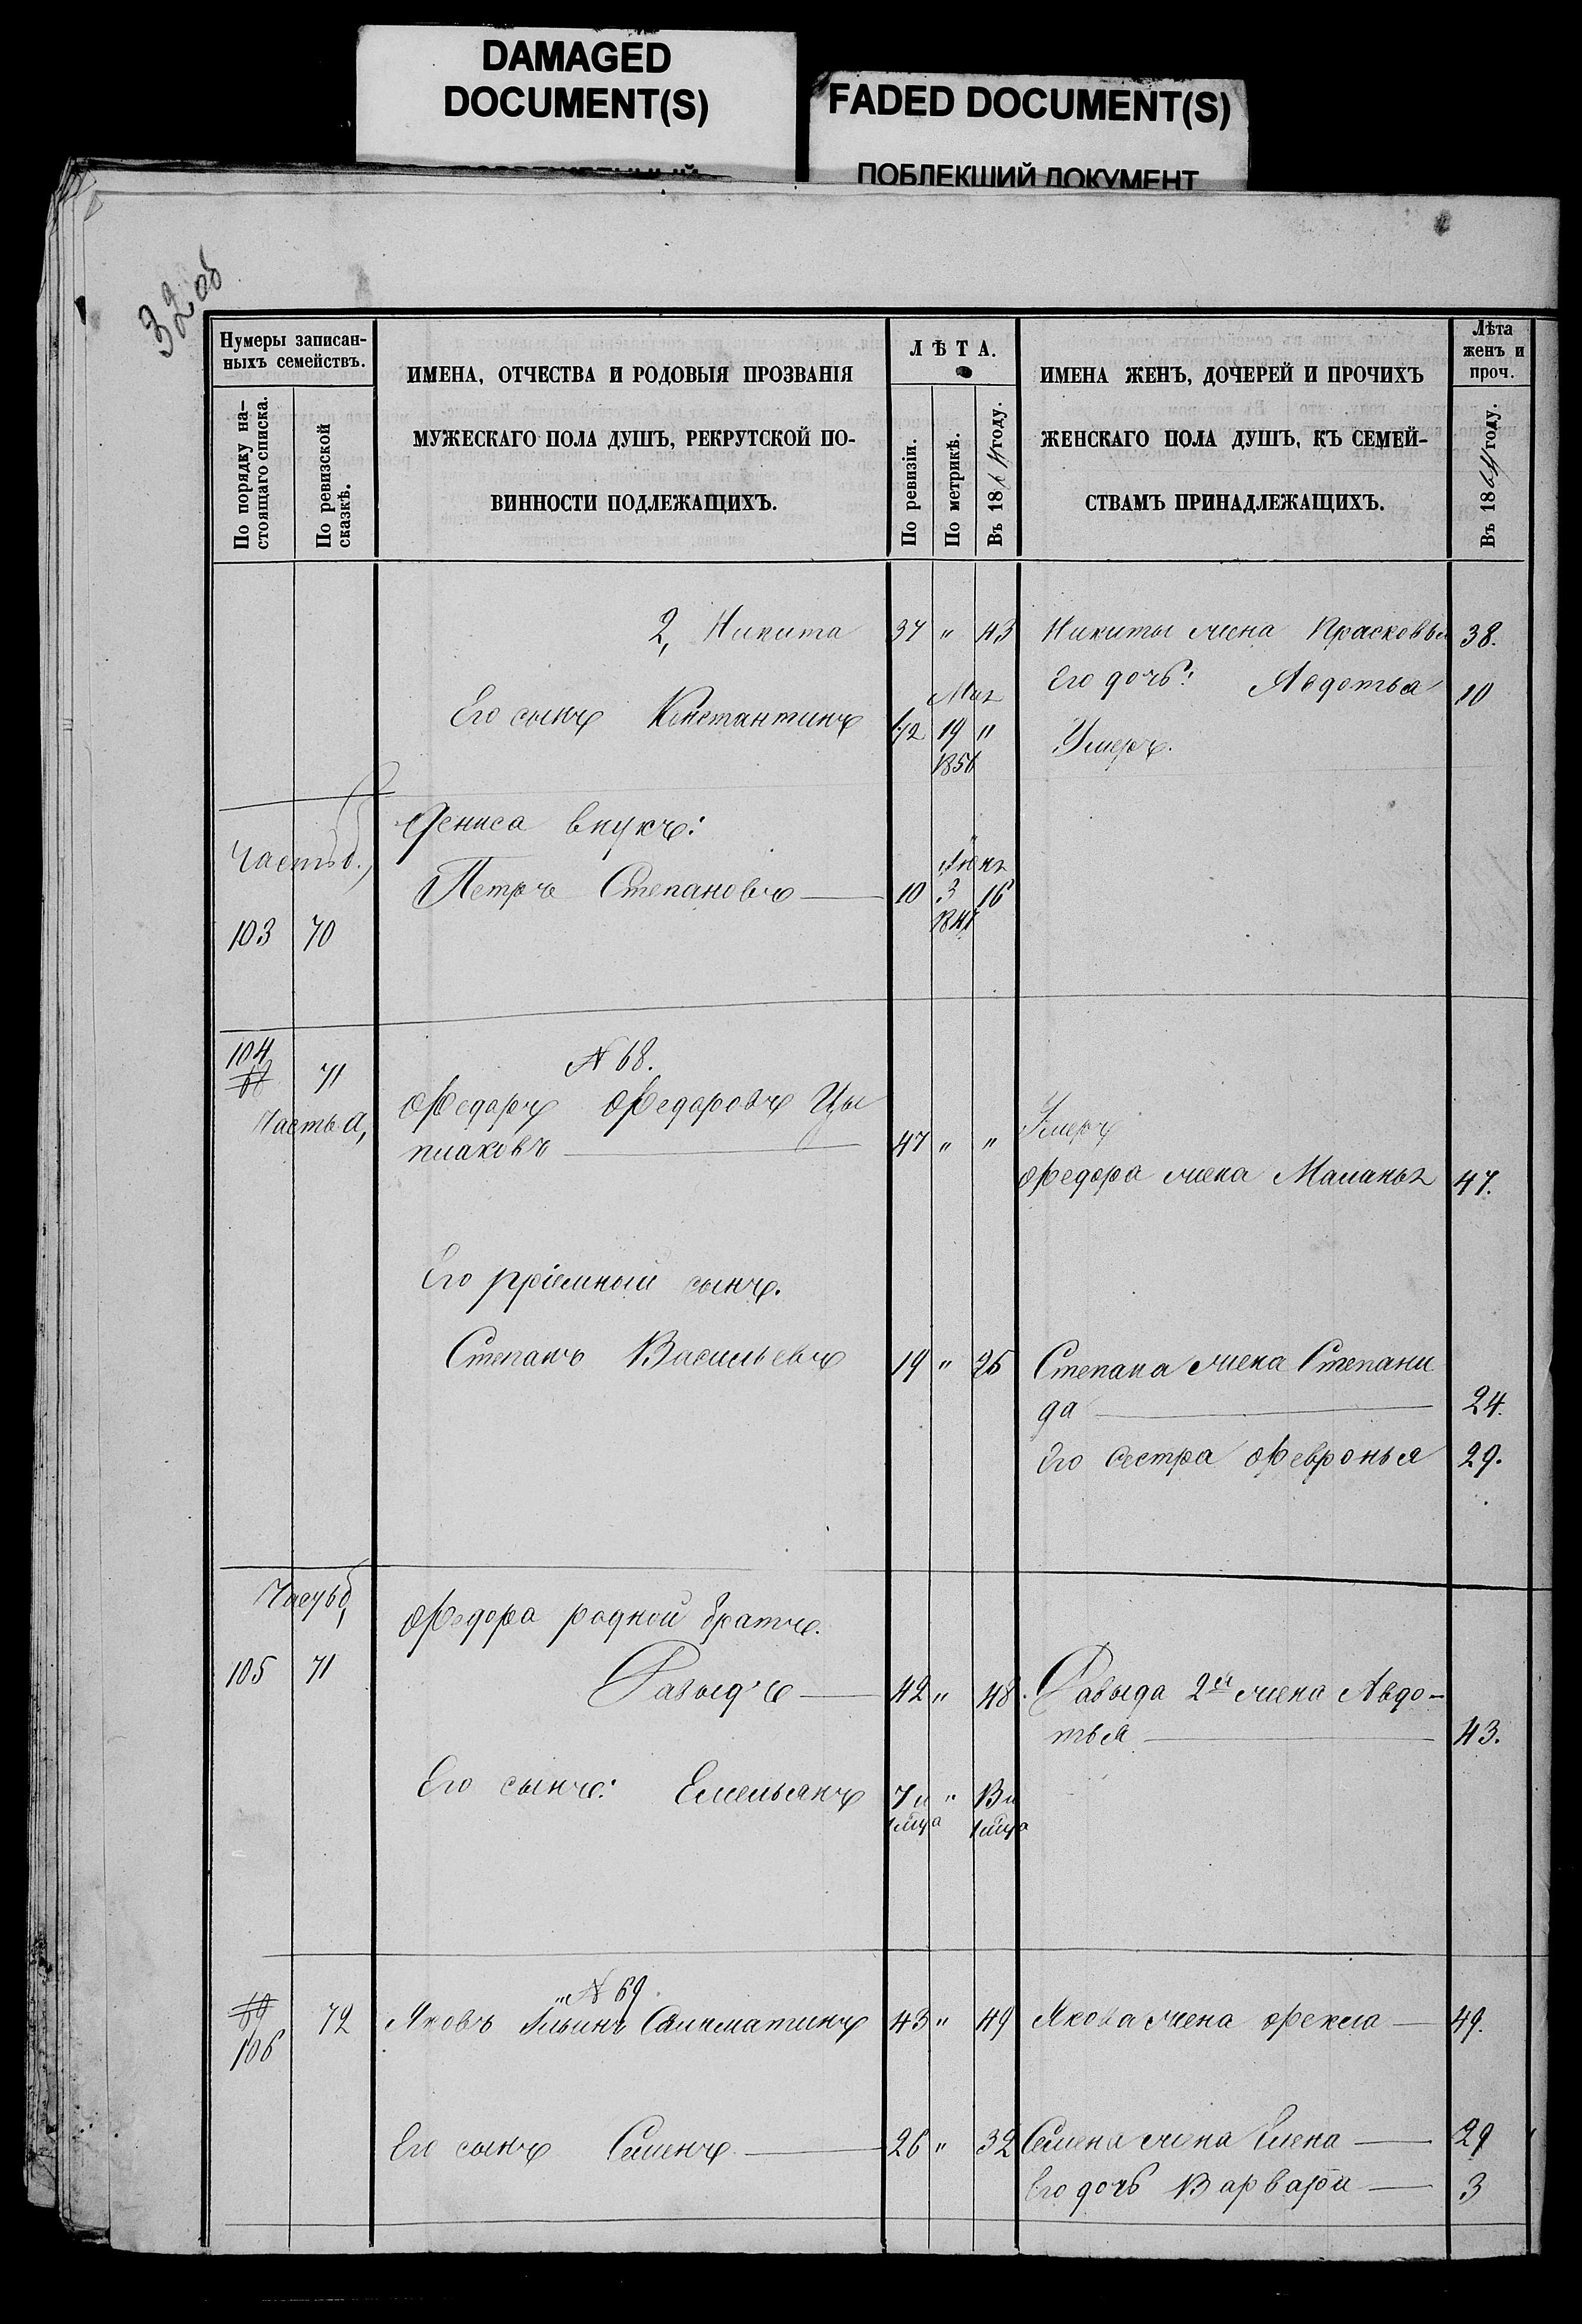 DAMAGED
DOCUMENT(S)
FADED DOCUMENT(S)
ПОБЛЕКШИЙ ДОКУМЕНТ
32 об
Нумеры записан-
ныхъ семействъ.
По порядку на-
стоящаго списка.
По ревизской
сказкѣ.
ИМЕНА, ОТЧЕСТВА И РОДОВЫЯ ПРОЗВАНІЯ
МУЖЕСКАГО ПОЛА ДУШЪ, РЕКРУТСКОЙ ПО-
ВИННОСТИ ПОДЛЕЖАЩИХЪ.
ЛѢТА.
По ревизіи.
По метрикѣ.
Въ 1864 году.
ИМЕНА ЖЕНЪ, ДОЧЕРЕЙ И ПРОЧИХЪ
ЖЕНСКАГО ПОЛА ДУШЪ, КЪ СЕМЕЙ-
СТВАМЪ ПРИНАДЛЕЖАЩИХЪ.
Лѣта
женъ и
проч.
Въ 1864 году.
2, Никита 37 " 43 Никиты жена Прасковья 38.
Его дочь: Авдотья 10
Его сынъ Константинъ 1/2 19 " Умеръ.
1856
Дениса внукъ:
Часть б,
Петръ Степановъ 10 3 16
103 70
104
68 71
№ 68.
Часть а,
Федоръ Федоровъ Цы
плаковъ 47 " " Умеръ
Федора жена Маланья 47.
Его пріемный сынъ.
Степанъ Васильевъ 19 " 25 Степана жена Степани
да 24.
Его сестра Февронья 29.
Часть б,
Федора родной братъ.
105 71
Давыдъ 42 " 48. Давыда 2я жена Авдо-
тья 43.
Его сынъ: Емельянъ 7 и " 13 и
№ 69
69 72 Яковъ Ильинъ 43 " 49 Якова жена Фекла 49.
106
Его сынъ Семенъ 26 " 32 Семена жена Елена 29
Его дочь Варвара 3